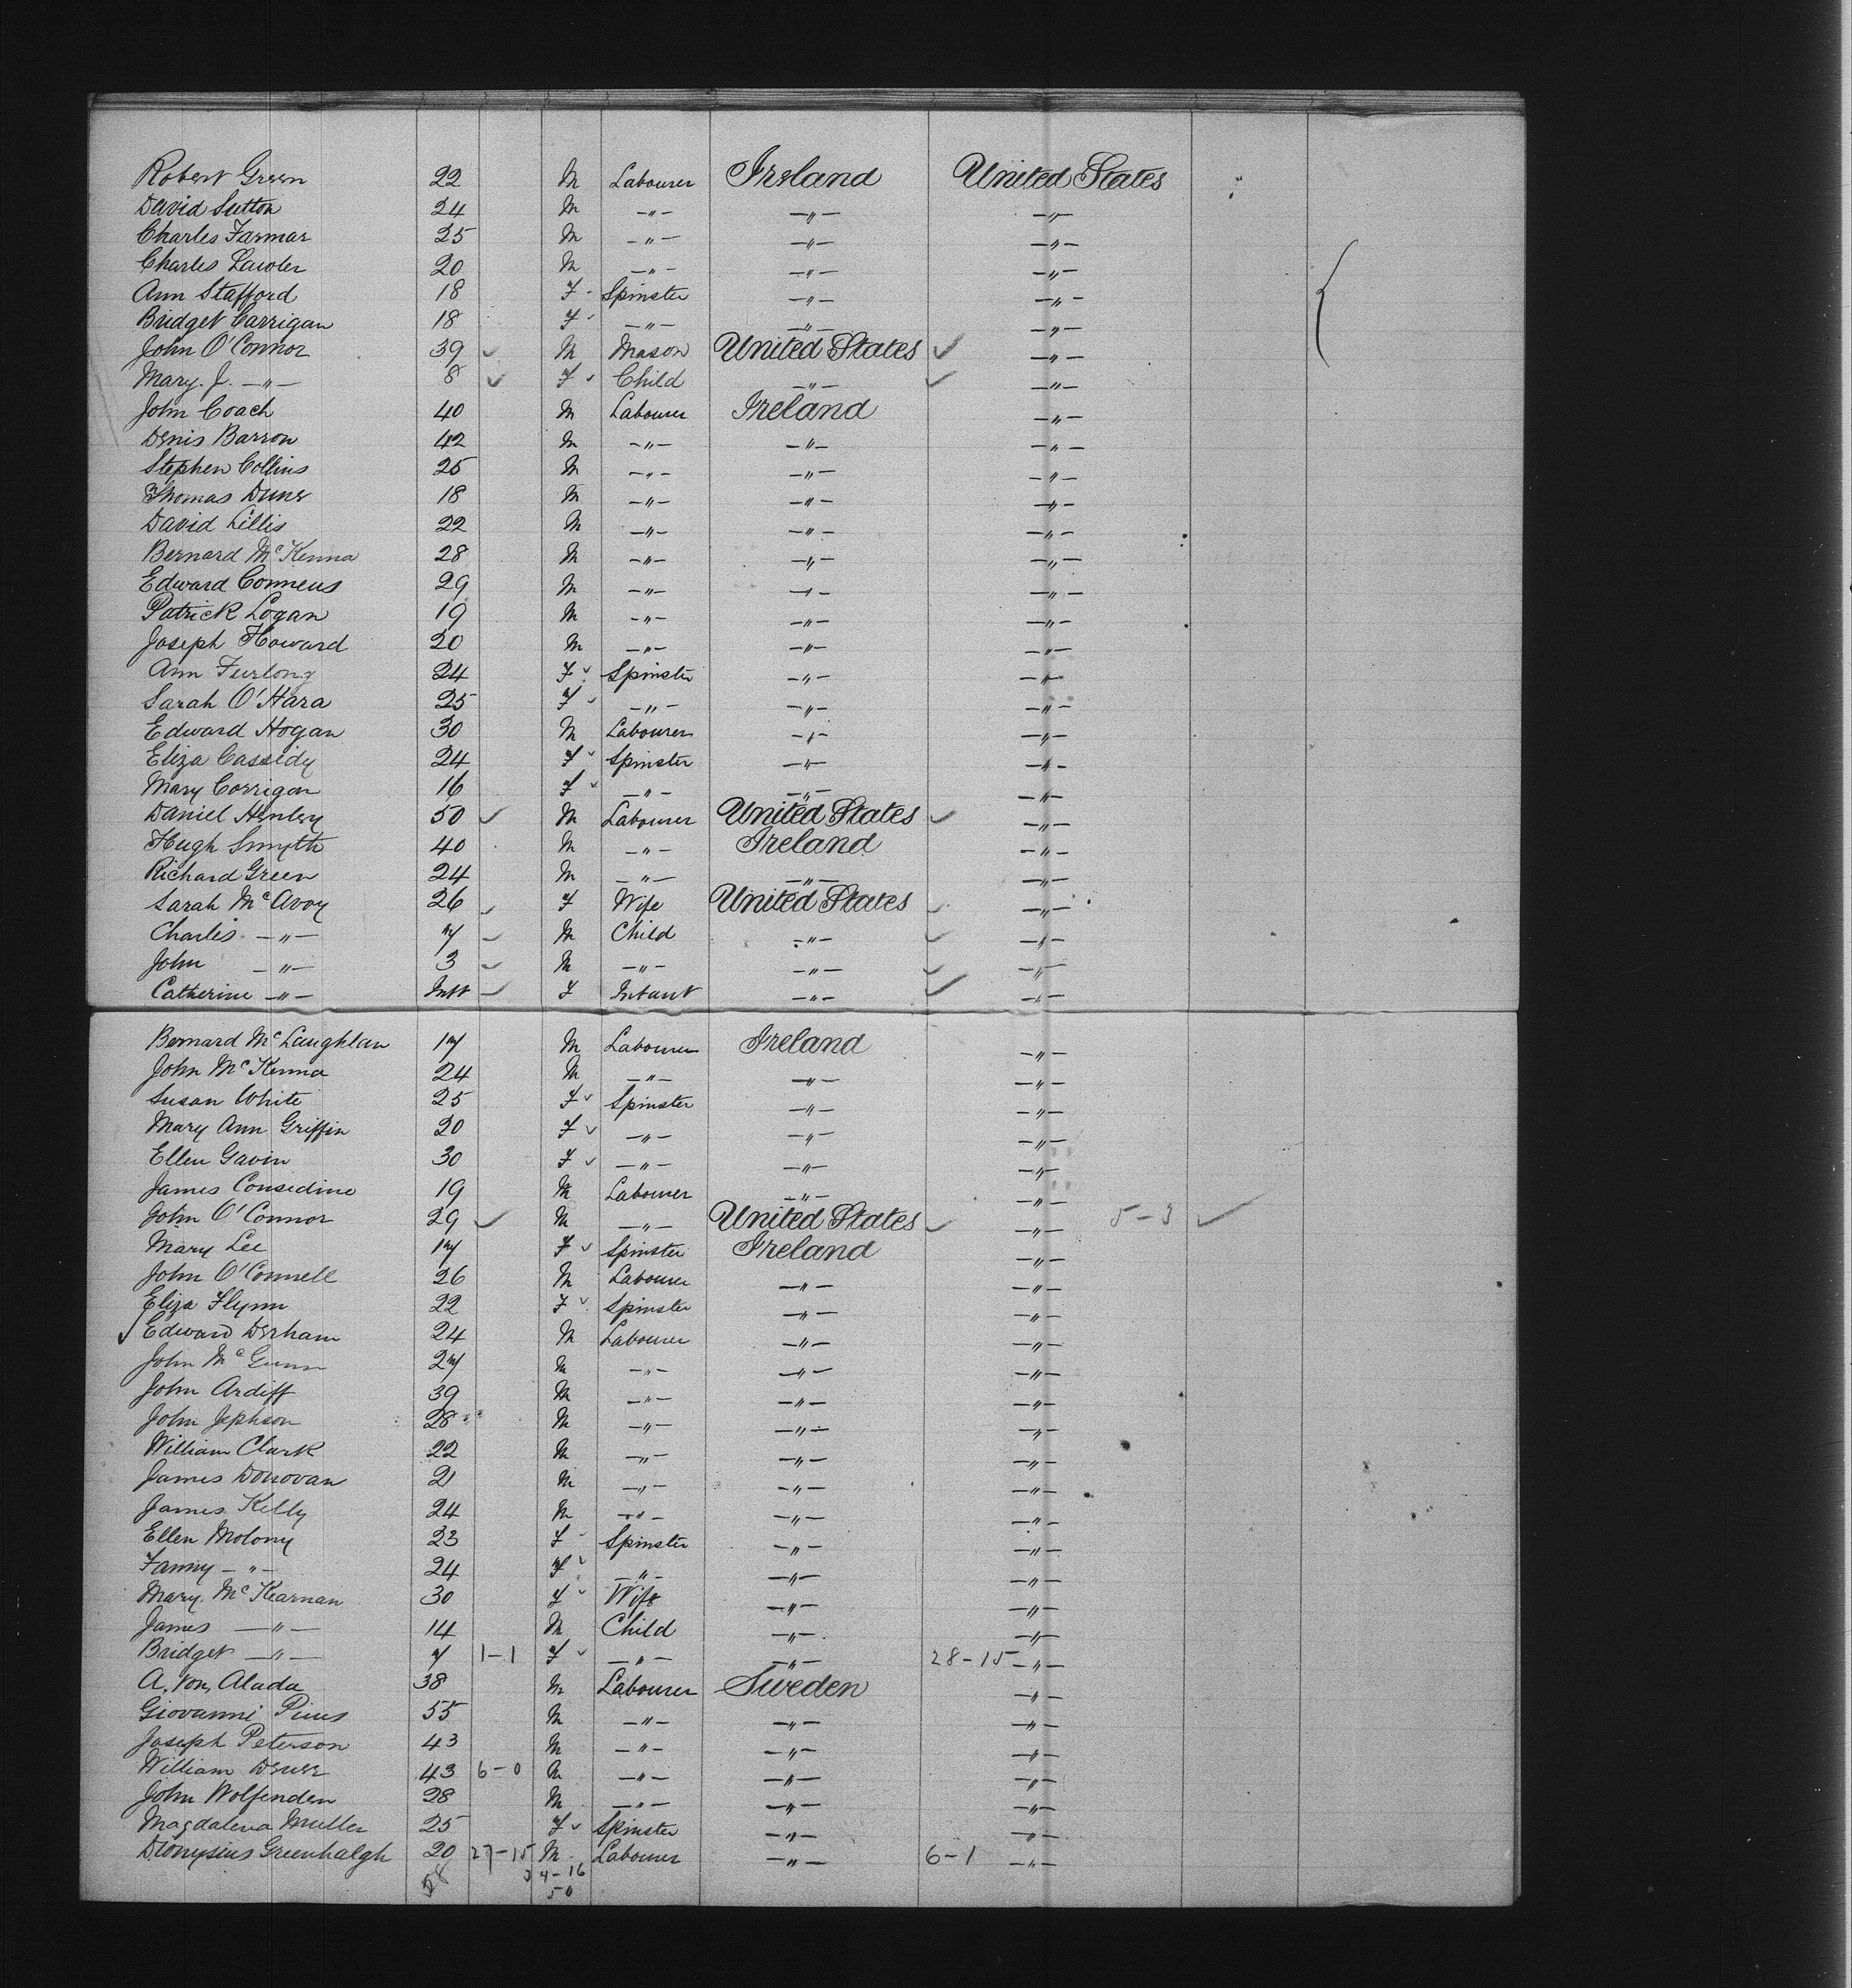 Robert Green 22 M Labourer Ireland United States
David Sutton 24 M -"- -"- -"-
Charles Farmar 25 M -"- -"- -"-
Charles Lawler 20 M -"- -"- -"-
Ann Stafford 18 F Spinster -"- -"-
Bridget Carrigan 18 F -"- -"- -"-
John O'Connor 39 ✓ M Mason United States ✓ -"-
Mary. J. -"- 8 ✓ F ✓ Child -"- ✓ -"-
John Coach 40 M Labourer Ireland -"-
Denis Barron 42 M -"- -"- -"-
Stephen Collins 25 M -"- -"- -"-
Thomas Dunn 18 M -"- -"- -"-
David Lillis 22 M -"- -"- -"-
Bernard McKenna 28 M -"- -"- -"-
Edward 29 M -"- -"- -"-
Patrick Logan 19 M -"- -"- -"-
Joseph Howard 20 M -"- -"- -"-
Ann Furlong 24 F ✓ Spinster -"- -"-
Sarah O'Hara 25 F ✓ -"- -"- -"-
Edward Hogan 30 M Labourer -"- -"-
Eliza Cassidy 24 F ✓ Spinster -"- -"-
Mary Corrigan 16 F ✓ -"- -"- -"-
Daniel Henley 50 ✓ M Labourer United States ✓ -"-
Hugh Smyth 40 M -"- Ireland -"-
Richard Green 24 M -"- -"- -"-
Sarah McAvoy 26 ✓ F Wife United States ✓ -"-
Charles -"- 7 ✓ M Child -"- ✓ -"-
John -"- 3 ✓ M -"- -"- ✓ -"-
Catherine -"- Inft ✓ F Infant -"- ✓ -"-
Bernard McLaughlan 17 M Labourer Ireland -"-
John McKenna 24 M -"- -"- -"-
Susan White 25 F ✓ Spinster -"- -"-
Mary Ann Griffin 20 F ✓ -"- -"- -"-
Ellen Gavin 30 F ✓ -"- -"- -"-
James Considine 19 M Labourer -"- -"-
John O'Connor 29 ✓ M -"- United States ✓ -"- 5-3 ✓
Mary Lee 17 F ✓ Spinster Ireland -"-
John O'Connell 26 M Labourer -"- -"-
Eliza Flynn 22 F ✓ Spinster -"- -"-
Edward Derham 24 M Labourer -"- -"-
John McGunn 27 M -"- -"- -"-
John Ardiff 39 M -"- -"- -"-
John Jephson 28 M -"- -"- -"-
William Clark 22 M -"- -"- -"-
James Donovan 21 M -"- -"- -"-
James Kelly 24 M -"- -"- -"-
Ellen Molony 23 F Spinster -"- -"-
Fanny -"- 24 F ✓ -"- -"- -"-
Mary McKearnan 30 F ✓ Wife -"- -"-
James -"- 14 M Child -"- -"-
Bridget -"- 7 1-1 F ✓ -"- -"- 28-15 -"-
A. von Alada 38 M Labourer Sweden -"-
Giovanni Pius 55 M -"- -"- -"-
Joseph Peterson 43 M -"- -"- -"-
William 43 6-0 M -"- -"- -"-
John Wolfenden 28 M -"- -"- -"-
Magdalena Muller 25 F ✓ Spinster -"- -"-
Dionysius Greenhalgh 20 27-15 M Labourer -"- 6-1 -"-
58 34-16
50